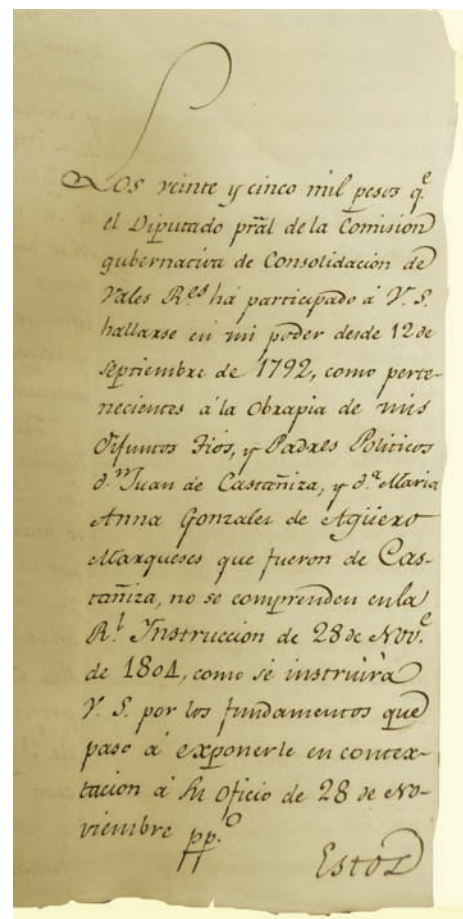 Los veinte y cinco mil pesos q.e
el Diputado prâl de la Comision
gubernativa de Consolidacion de
Vales R.es há participado á V. S.
hallarse en mi poder desde 12 de
Septiembre de 1792, como perte-
necientes á la Obrapia de mis
difuntos Tios, y Padres Politicos
d.n Juan de Castañiza, y d.a Maria
Anna Gonzales de Agüero
Marqueses que fueron de Cas-
tañiza, no se comprenden en la
R.l Instruccion de 28 de Nov.e
de 1804, como se instruirà
V. S. por los fundamentos que
paso á exponerle en contex-
tacion á su oficio de 28 de No-
viembre pp.o
Estos